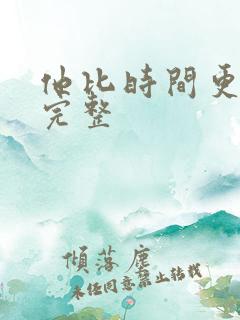 他比時間更
完整
傾落塵
未經同意禁止轉載